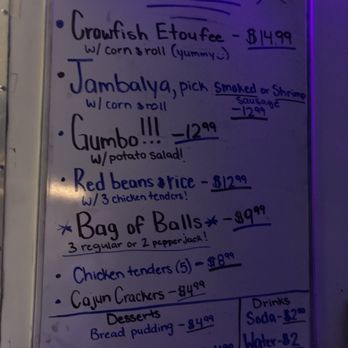 • Crawfish Etoufee - $14.99
w/ corn & roll (yummy☺)
• Jambalya, pick smoked or Shrimp
w/ corn & roll
sausage
-12.99
• Gumbo!!! -12.99
w/potato salad!
• Red beans & rice - $12.99
w/ 3 chicken tenders!
* Bag of Balls * - $9.99
3 regular or 2 pepperjack!
• Chicken tenders (5) - $8.99
• Cajun Crackers - $4.99
Desserts
Bread pudding - $4.99
Drinks
Soda - $2.00
Water - $2